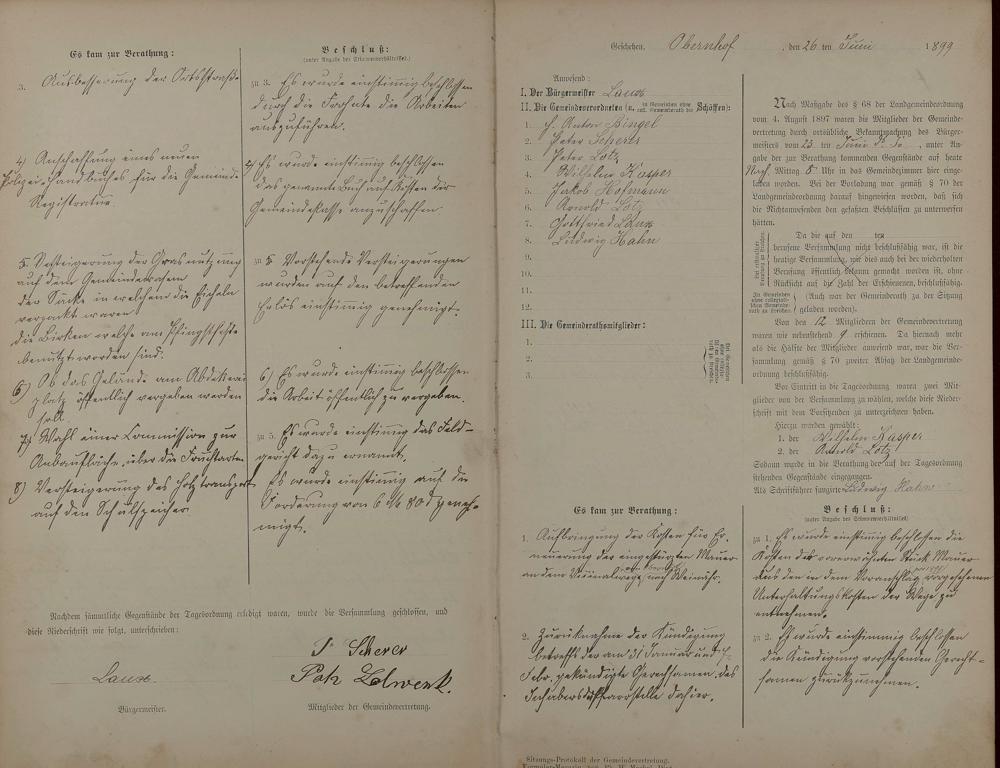 Es kam zur Berathung:
Beschluß:
(unter Angabe des Stimmenverhältnisses.)
3. Ausbesserung der Ortsstraße.
zu 3. Es wurde einstimmig beschlossen
durch die Frohnte die Arbeiten
auszuführen.
4) Anschaffung eines neuen
Polizei-Handbuches für die Gemeinde
Registratur.
4) Es wurde einstimmig beschlossen
das genannte Buch auf Kosten der
Gemeindekasse anzuschaffen.
5. Versteigerung der Grasnutzung
auf dem
der Säcke in welchem die Eicheln
verpackt waren
die Birken welche am Pfingstfeste
benutzt worden sind.
zu 5 Vorstehende Versteigerungen
wurden auf den betreffenden
Erlös einstimmig genehmigt.
6) Ob das Gelände am
platz öffentlich vergeben werden
soll
6) Es wurde einstimmig beschlossen
die Arbeit öffentlich zu vergeben.
7) Wahl einer Commission zur
Anbaufläche über die Fruchtarten
zu Es wurde einstimmig das Feld-
gericht dazu ernannt.
8) Versteigerung des Holztransport
auf den Schulspeicher.
Es wurde einstimmig auf die
Forderung von 6 M 80 d geneh-
migt.
Nachdem sämmtliche Gegenstände der Tagesordnung erledigt waren, wurde die Versammlung geschlossen, und
diese Niederschrift wie folgt, unterschrieben:
Laux.
Scherer
Bürgermeister.
Mitglieder der Gemeindevertretung.
Geschehen, Obernhof, den 26 ten Juni 1899
Anwesend:
I. Der Bürgermeister Laux
II. Die Gemeindeverordneten (u. in Gemeinden ohne coll. Gemeinderath die Schöffen):
1. Anton Bingel
2. Peter Scherer
3. Peter Lotz
4. Wilhelm Kasper
5. Jakob Hofmann
6. Arnold Lotz
7. Gottfried Laux
8. Ludwig Hahn
9.
10.
11.
12.
III. Die Gemeinderathsmitglieder:
1.
2.
3.
Nach Maßgabe des § 68 der Landgemeindeordnung
vom 4. August 1897 waren die Mitglieder der Gemeinde-
vertretung durch ortsübliche Bekanntmachung des Bürger-
meisters vom 23. ten Juni d. Js., unter An-
gabe der zur Berathung kommenden Gegenstände auf heute
Nach Mittag 8 Uhr in das Gemeindezimmer hier einge-
laden worden. Bei der Vorladung war gemäß § 70 der
Landgemeindeordnung darauf hingewiesen worden, daß sich
die Nichtanwesenden den gefaßten Beschlüssen zu unterwerfen
hätten.
Da die auf den ten
berufene Versammlung nicht beschlußfähig war, ist die
heutige Versammlung, wie dies auch bei der wiederholten
Berufung öffentlich bekannt gemacht worden ist, ohne
Rücksicht auf die Zahl der Erschienenen, beschlußfähig.
(Auch war der Gemeinderath zu der Sitzung
geladen worden).
Von den 12 Mitgliedern der Gemeindevertretung
waren wie nebenstehend 9 erschienen. Da hiernach mehr
als die Hälfte der Mitglieder anwesend war, war die Ver-
sammlung gemäß § 70 zweiter Absatz der Landgemeinde-
ordnung beschlußfähig.
Vor Eintritt in die Tagesordnung waren zwei Mit-
glieder von der Versammlung zu wählen, welche diese Nieder-
schrift mit dem Vorsitzenden zu unterzeichnen haben.
Hierzu wurden gewählt:
1. der Wilhelm Kasper
2. der Arnold Lotz
Sodann wurde in die Berathung der auf der Tagesordnung
stehenden Gegenstände eingegangen.
Als Schriftführer fungierte Ludwig Hahn
Es kam zur Berathung:
Beschluß:
(unter Angabe des Stimmenverhältnisses)
1. Aufbringung der Kosten für Er-
neuerung der eingestürzten Mauer
an dem Vicinalwege nach Weinähr.
zu 1. Es wurde einstimmig beschlossen die
Kosten der vorerwähnten Stück Mauer
aus den in dem Voranschlag vorgesehenen
Unterhaltungskosten der Wege zu
entnehmen.
2. Zurücknahme der Kündigung
betreffs der am 31 Januar und
Febr. gekündigte Gerechtsamen des
Inhabers der Pfarrstelle dahier.
zu 2. Es wurde einstimmig beschlossen
die Kündigung vorstehenden Gerecht-
samen zurückzunehmen.
Sitzungs-Protokoll der Gemeindevertretung.